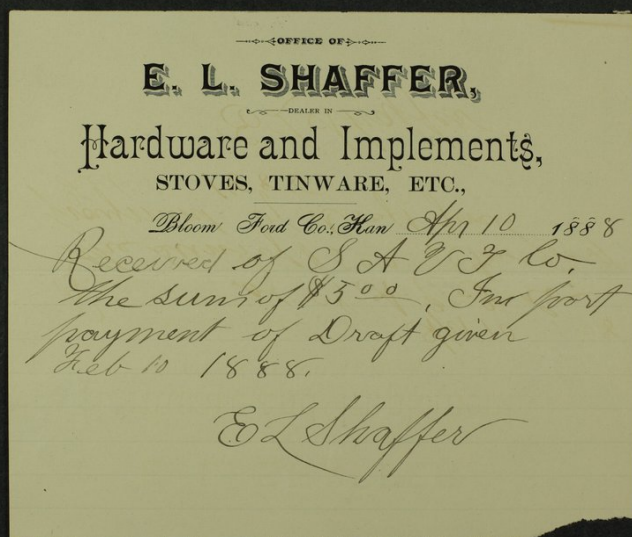 OFFICE OF
E. L. SHAFFER,
DEALER IN
Hardware and Implements,
STOVES, TINWARE, ETC.,
Bloom Ford Co., Kan Apr 10 1888
Received of S A V T Co.
the sum of $5 00, In part
payment of Draft given
Feb 10 1888.
E L Shaffer